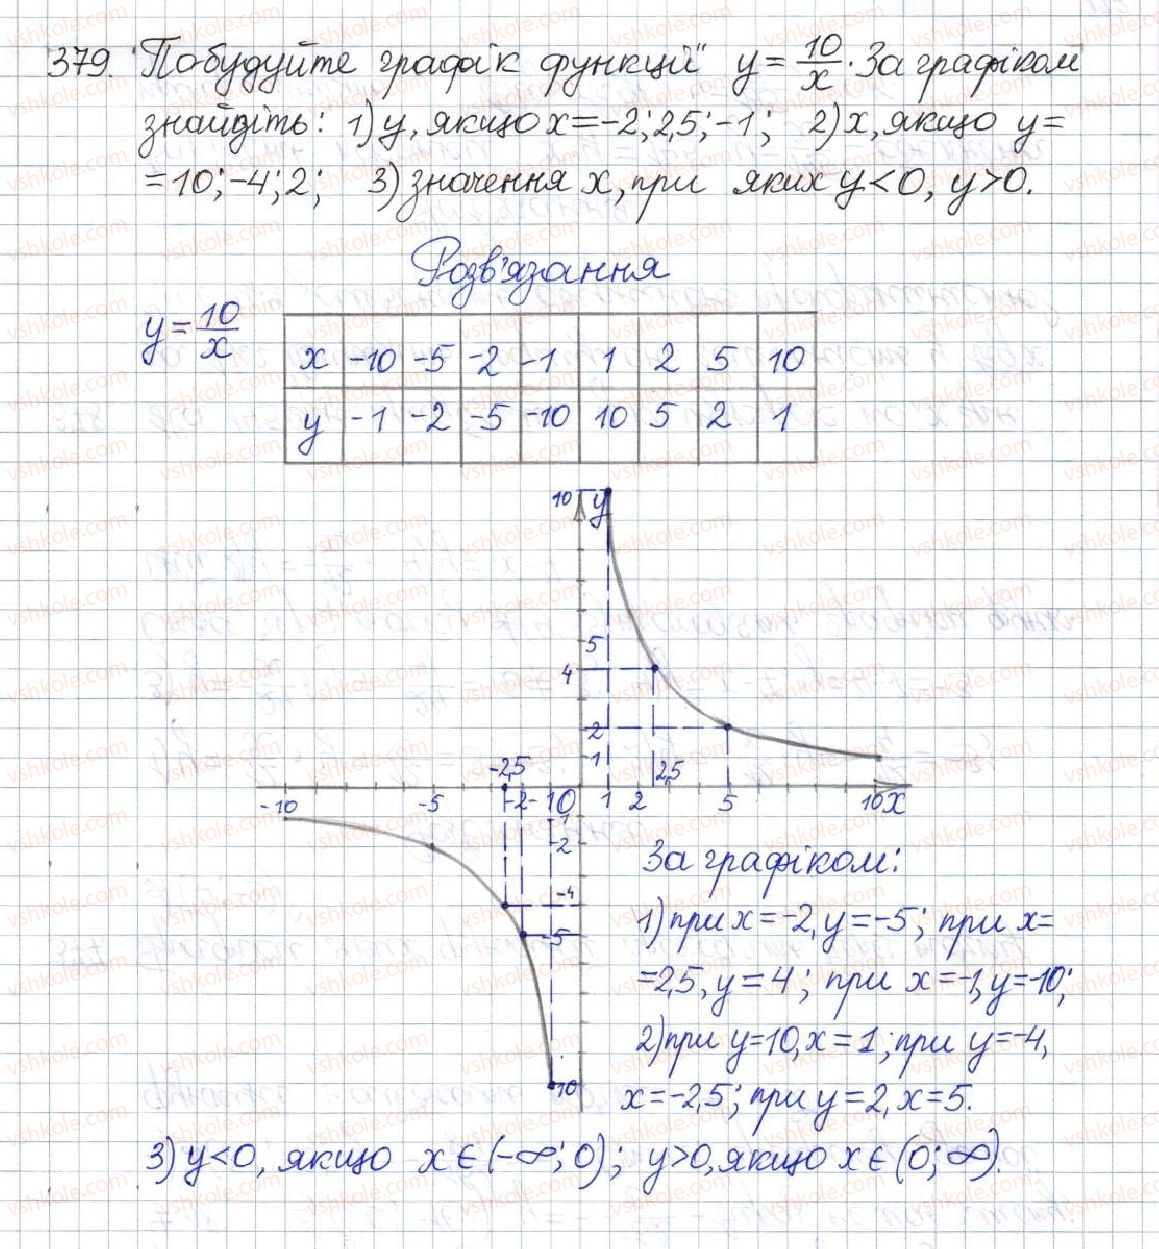 379. "Побудуйте графік функції" y = 10/x. За графіком
знайдіть: 1) y, якщо x = -2; 2,5; -1; 2) x, якщо y =
= 10; -4; 2; 3) значення x, при яких y < 0, y > 0.
Розв'язання
y = 10/x
x -10 -5 -2 -1 1 2 5 10
y -1 -2 -5 -10 10 5 2 1
10 y
5
4
2
1
-2,5 2,5
-10 -5 -2 -1 0 1 2 5 10 x
-1
-2
-4
-5
-10
За графіком:
1) при x = -2, y = -5; при x =
= 2,5, y = 4; при x = -1, y = -10;
2) при y = 10, x = 1; при y = -4,
x = -2,5; при y = 2, x = 5.
3) y < 0, якщо x ∈ (-∞; 0); y > 0, якщо x ∈ (0; ∞).
vshkole.com